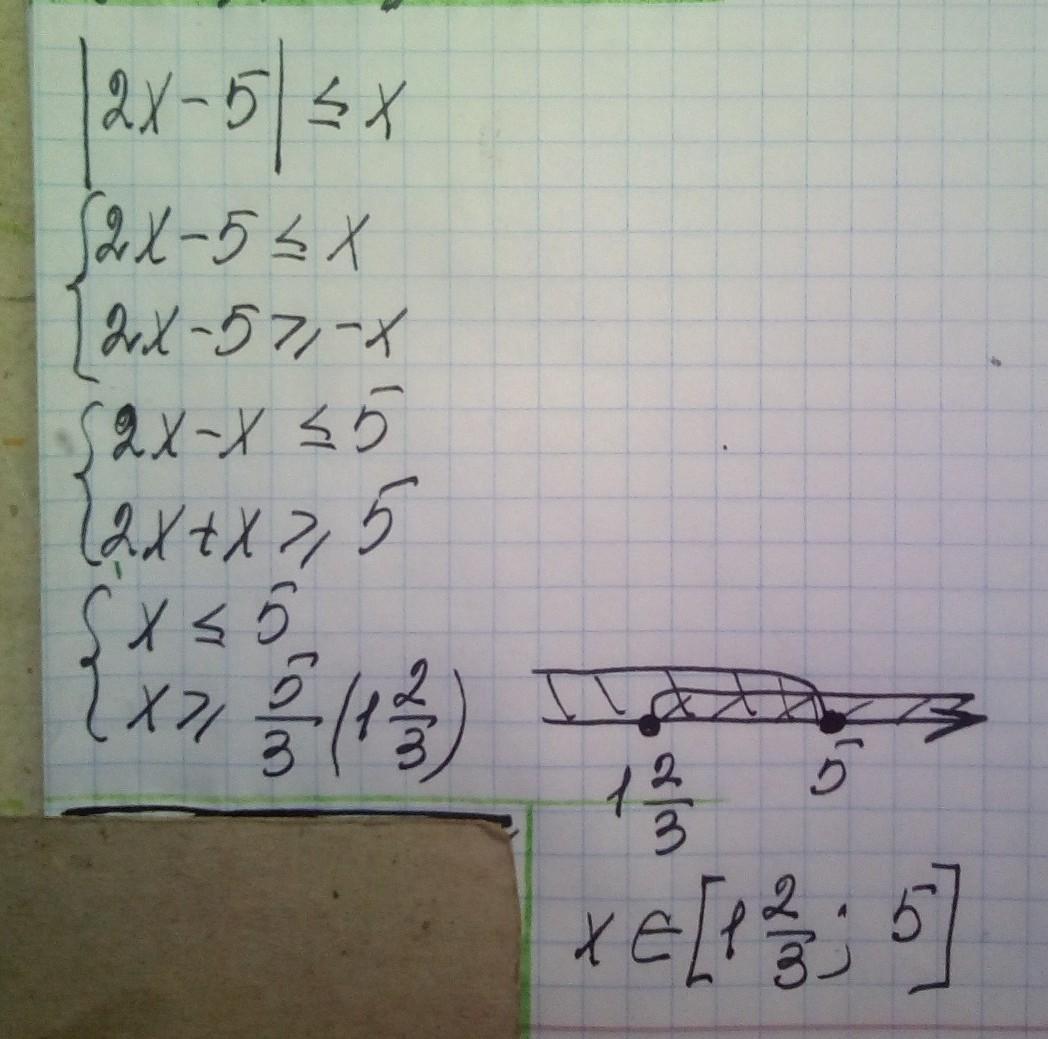 |2x-5| ≤ x
{2x-5 ≤ x
2x-5 ≥ -x
{2x-x ≤ 5
2x+x ≥ 5
{x ≤ 5
x ≥ 5/3 (1 2/3)
1 2/3 5
x ∈ [1 2/3; 5]